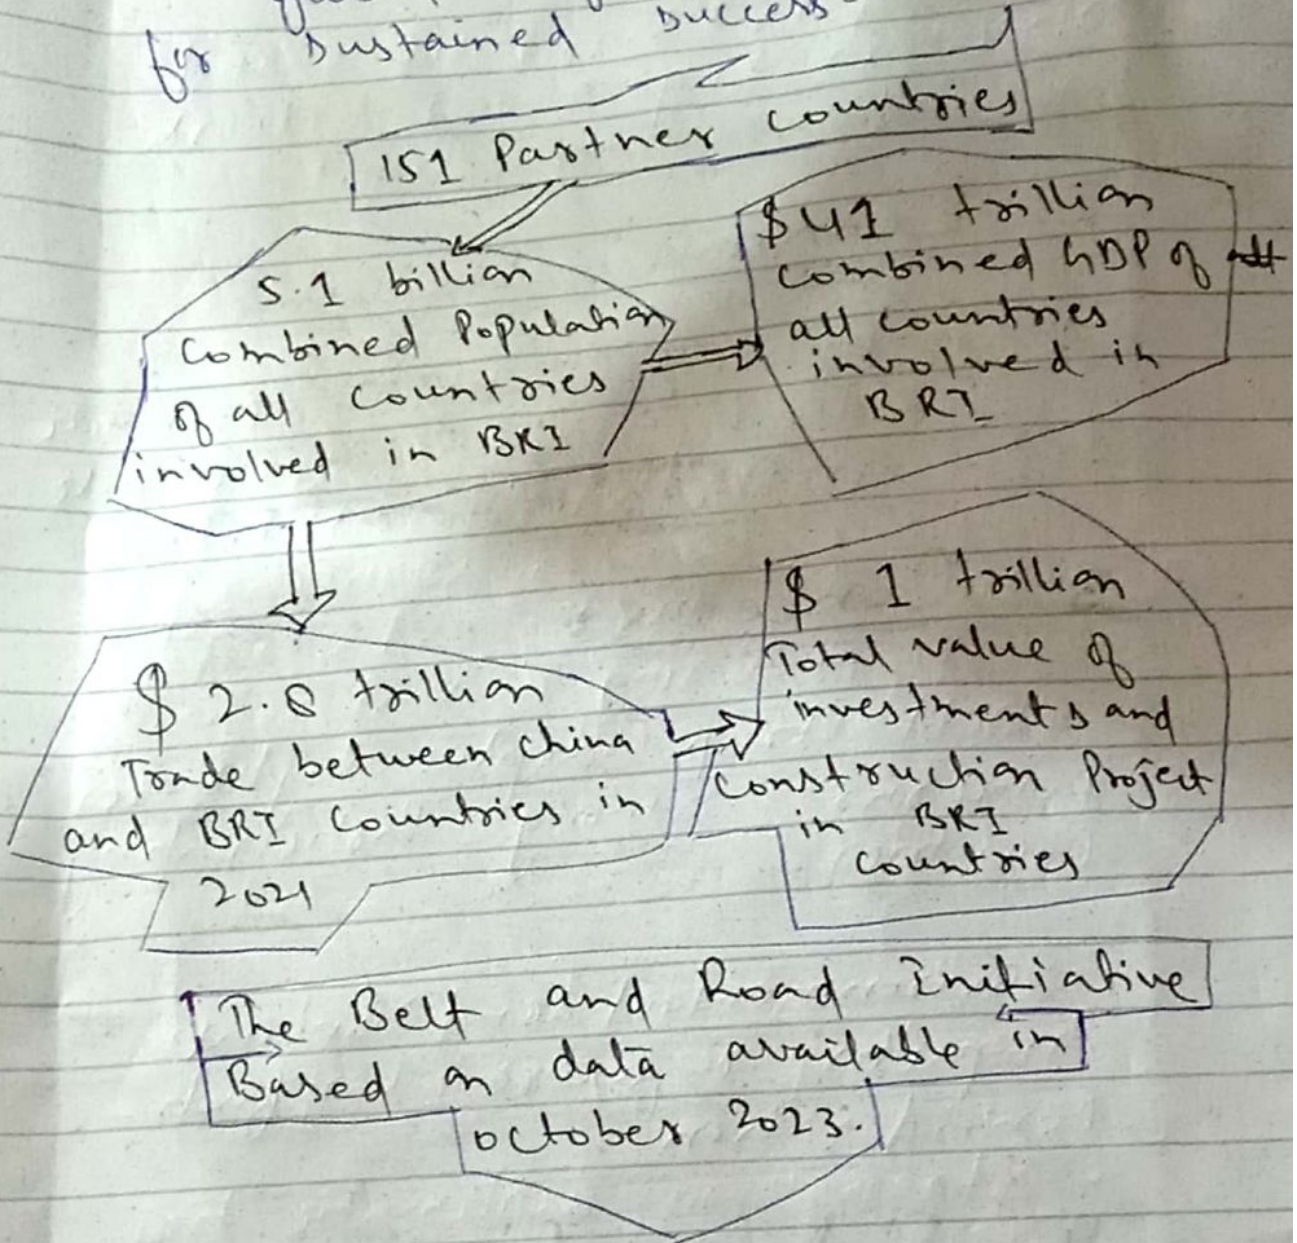 for sustained success
151 Partner countries
5.1 billion
Combined Population
of all countries
involved in BRI
$41 trillion
combined GDP of
all countries
involved in
BRI
$ 2.8 trillion
Trade between china
and BRI Countries in
2021
$ 1 trillion
Total value of
investments and
Construction Project
in BRI
countries
The Belt and Road Initiative
Based on data available in
october 2023.